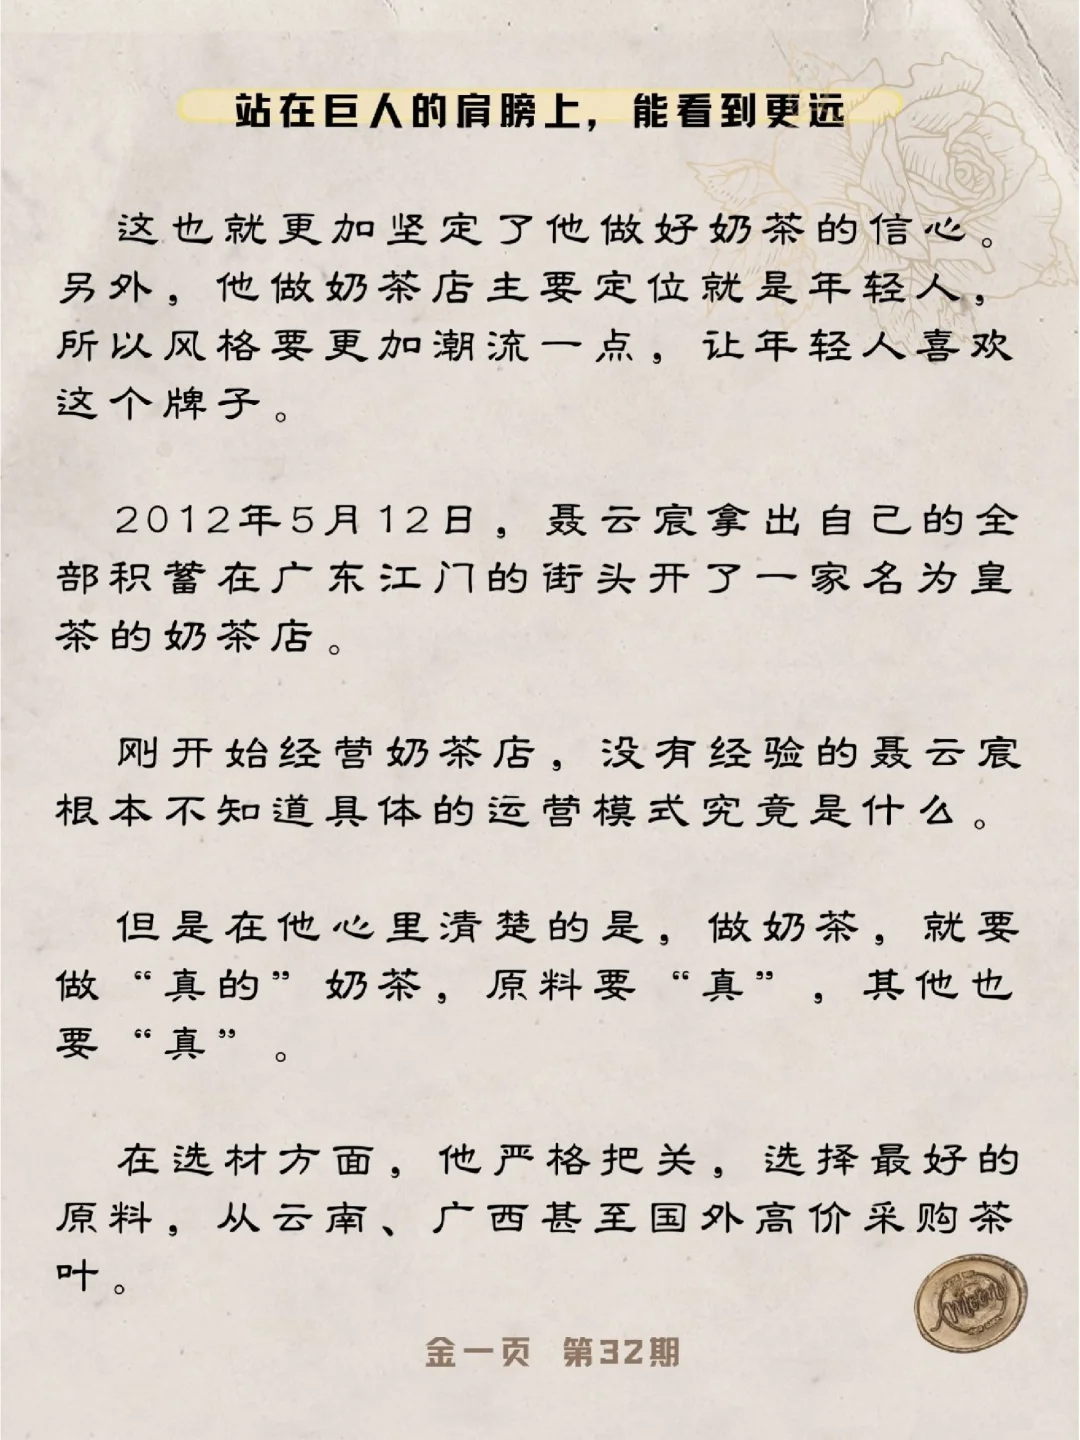 站在巨人的肩膀上，能看到更远
这也就更加坚定了他做好奶茶的信心。
另外，他做奶茶店主要定位就是年轻人，
所以风格要更加潮流一点，让年轻人喜欢
这个牌子。
2012年5月12日，聂云宸拿出自己的全
部积蓄在广东江门的街头开了一家名为皇
茶的奶茶店。
刚开始经营奶茶店，没有经验的聂云宸
根本不知道具体的运营模式究竟是什么。
但是在他心里清楚的是，做奶茶，就要
做“真的”奶茶，原料要“真”，其他也
要“真”。
在选材方面，他严格把关，选择最好的
原料，从云南、广西甚至国外高价采购茶
叶。
金一页 第32期